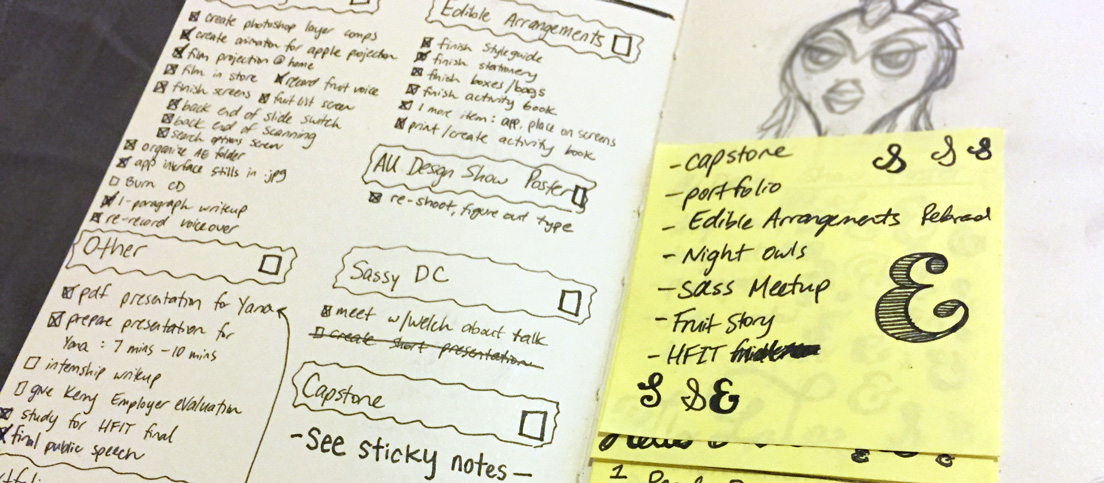 create photoshop layer comps
create animation for apple projection
film projection @ home
film in store record fruit voice
finish screens fruit list screen
back end of slide switch
back end of scanning
search options screen
organize AE folder
app interface stills in .jpg
Burn CD
1-paragraph writeup
re-record voiceover
Other
pdf presentation for Yana
prepare presentation for
Yana : 7 mins - 10 mins
internship writeup
give Kerry Employer evaluation
study for HFIT final
final public speech
Edible Arrangements
finish styleguide
finish stationery
finish boxes/bags
finish activity book
1 more item: app, place on screens
print/create activity book
AU Design Show Poster
re-shoot, figure out type
Sassy DC
meet w/Welch about talk
create short presentation
Capstone
-See sticky notes-
-capstone S S S
-portfolio
- Edible Arrangements Rebrand
- Night Owls
- Sass Meetup
- Fruit Story
- HFIT
&
S S &
1